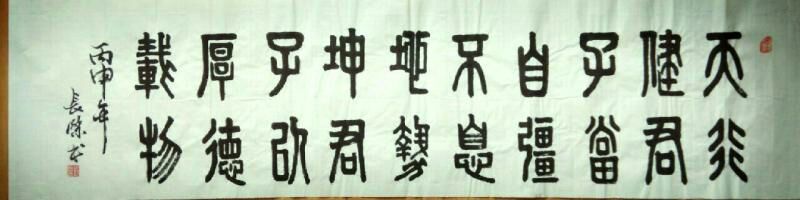 天行
健君
子當
自彊
不息
地勢
坤君
子以
厚德
載物
丙申年
長